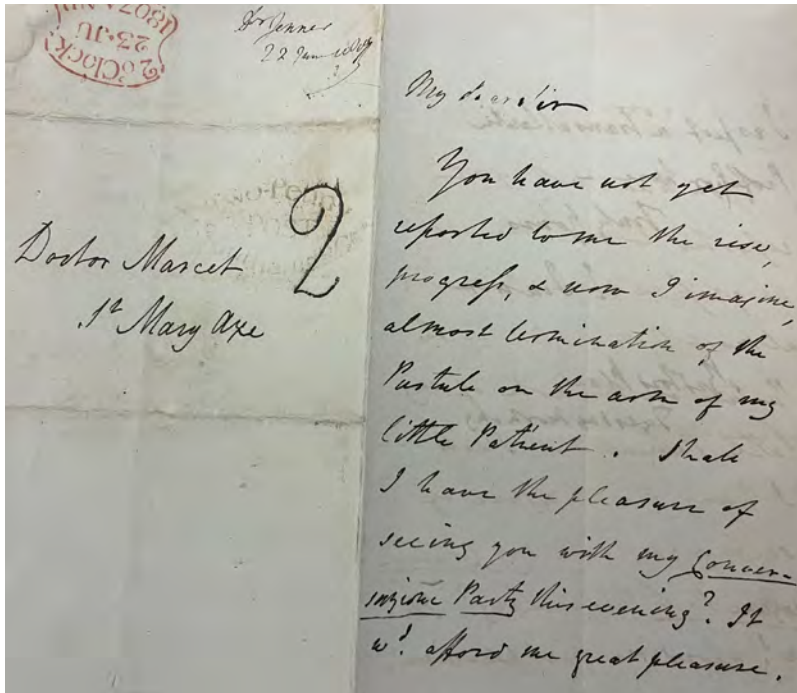 2 o'Clock
23 JU
1807
Dr Jenner
22 June 1807
Doctor Marcet
2
St Mary Axe
My dear Sir
You have not yet
reported to me the rise,
progress, & now I imagine,
almost termination of the
Pustule on the arm of my
little Patient. Shall
I have the pleasure of
seeing you with my Conver-
sazione Party this evening? It
wd. afford me great pleasure.